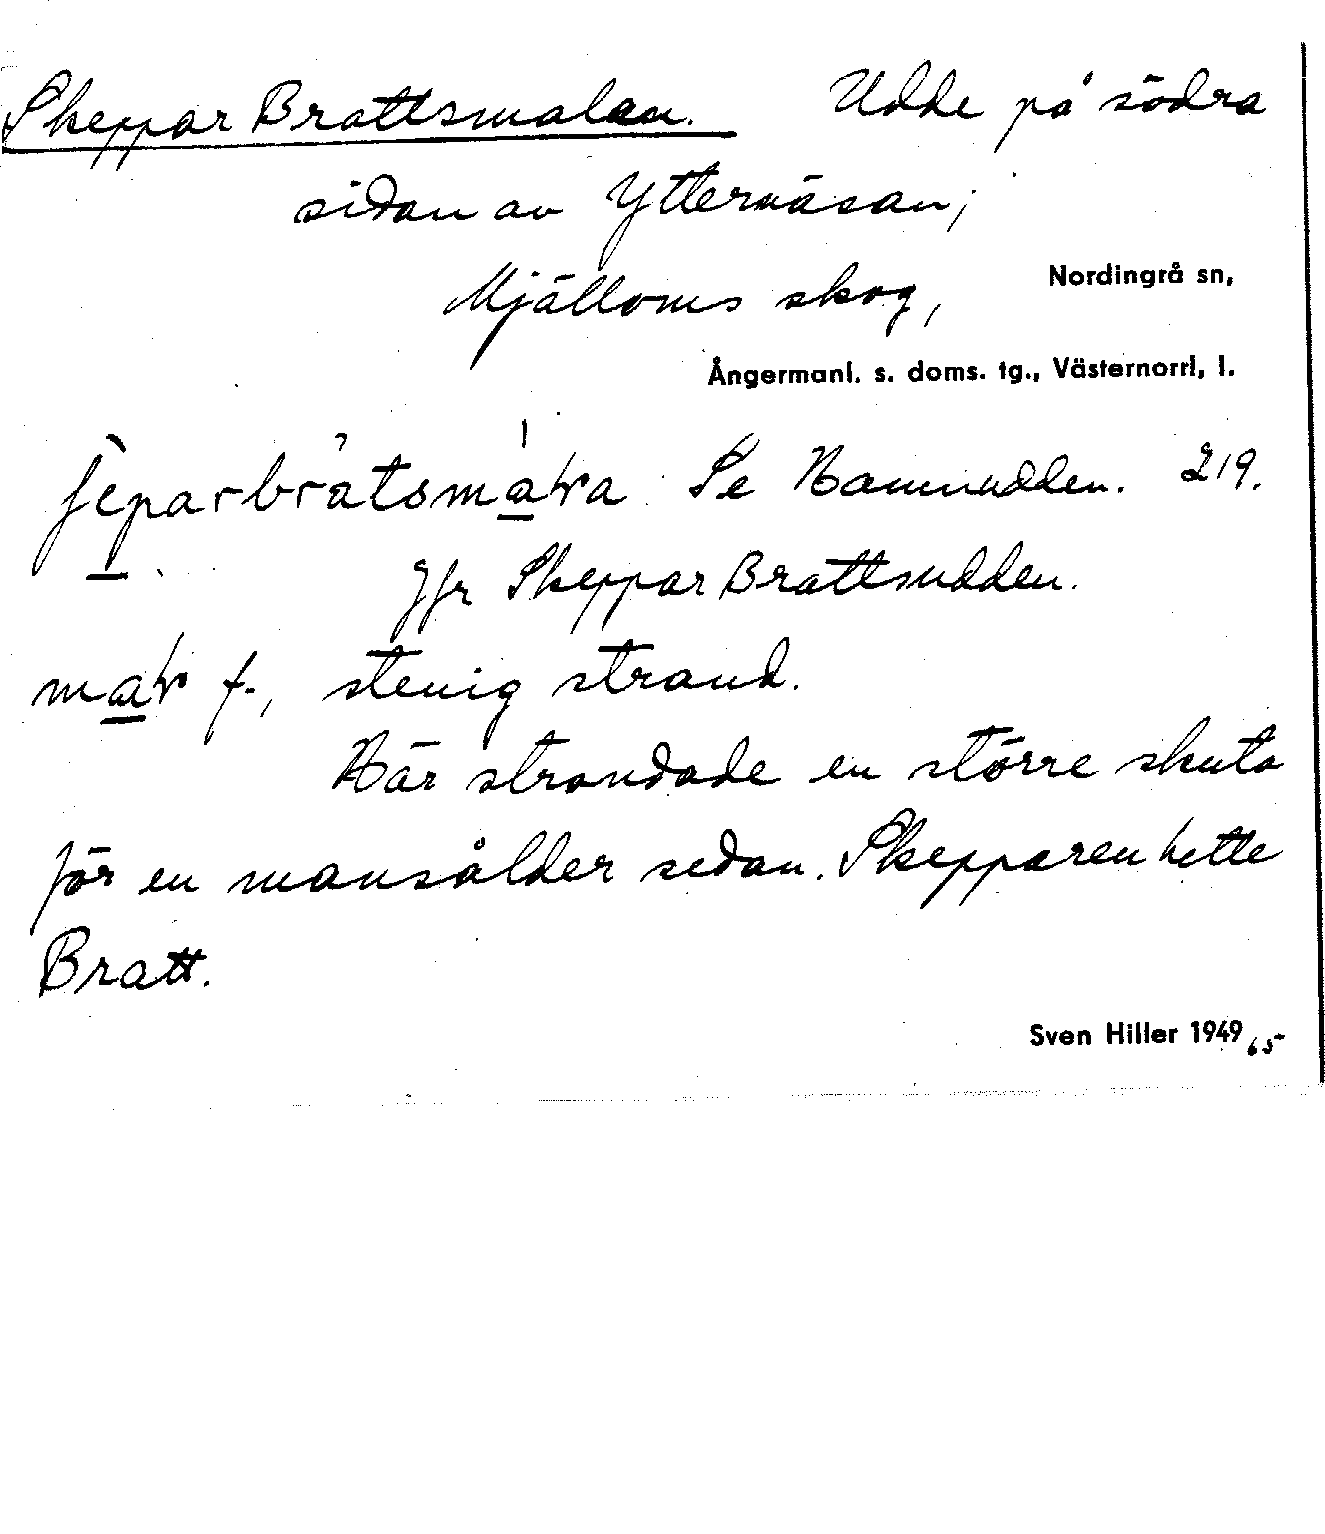 Skeppar Brattsmalan. Udde på södra
sidan av Ytternäsan;
Mjälloms skog,
Nordingrå sn,
Ångermanl. s. doms. tg., Västernorrl, l.
Se Hamnudden. 219.
Jfr Skeppar Brattsudden.
f., stenig strand.
Här strandade en större skuta
för en mansålder sedan. Skepparen hette
Bratt.
Sven Hiller 1949 65